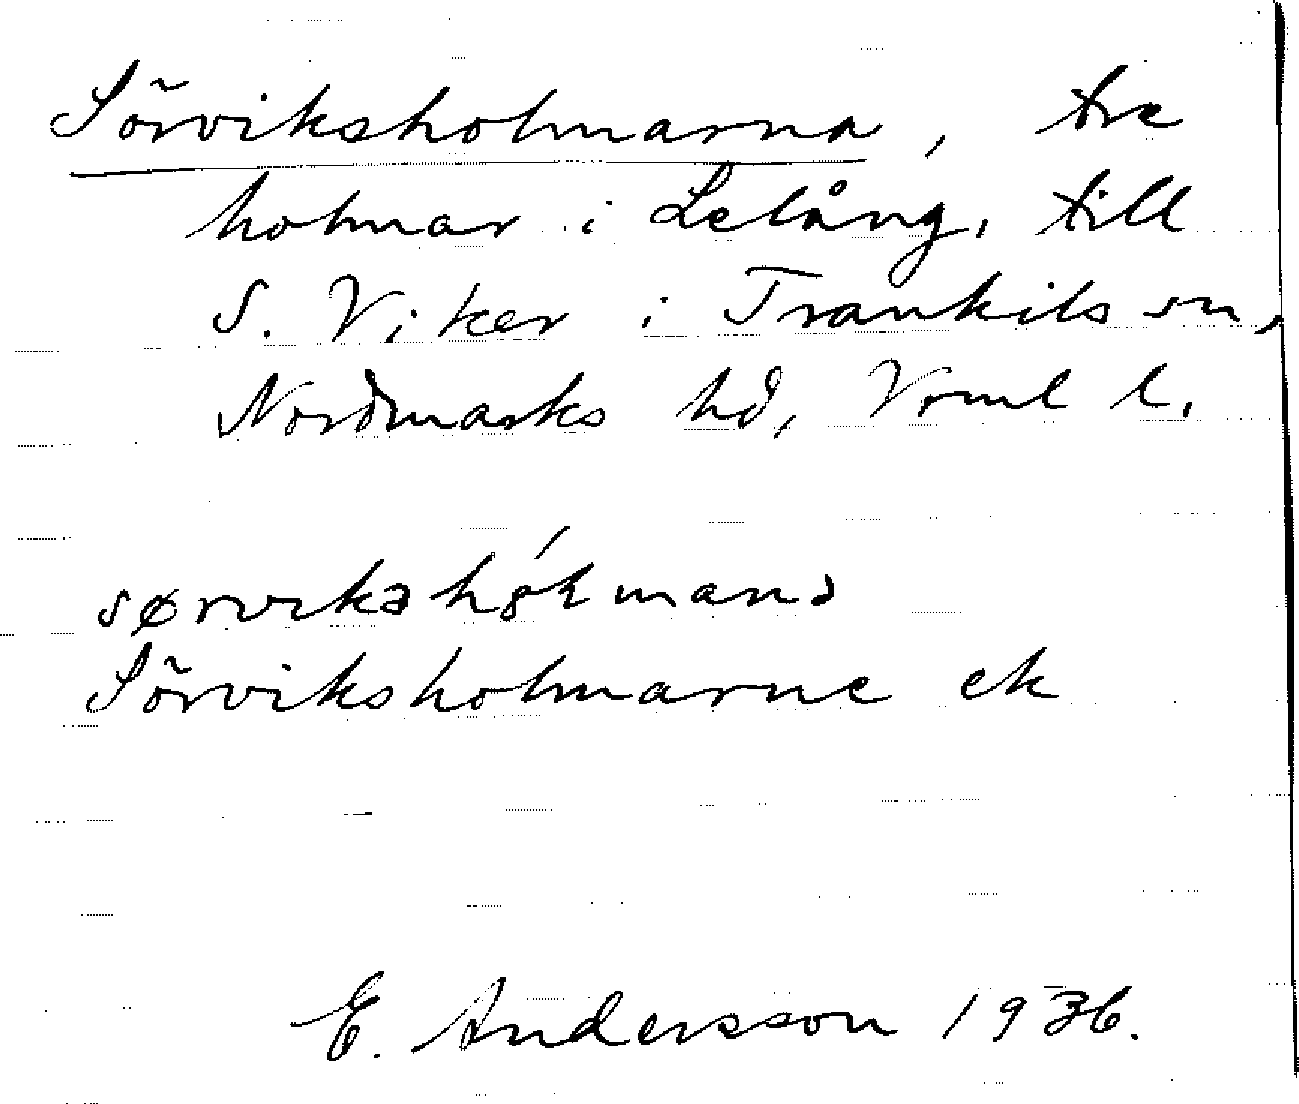 Sörviksholmarna, tre
holmar i Lelång, till
S. Viker i Trankils sn,
Nordmarks hd, Vrml l.
Sörviksholmarne ek
E. Andersson 1936.